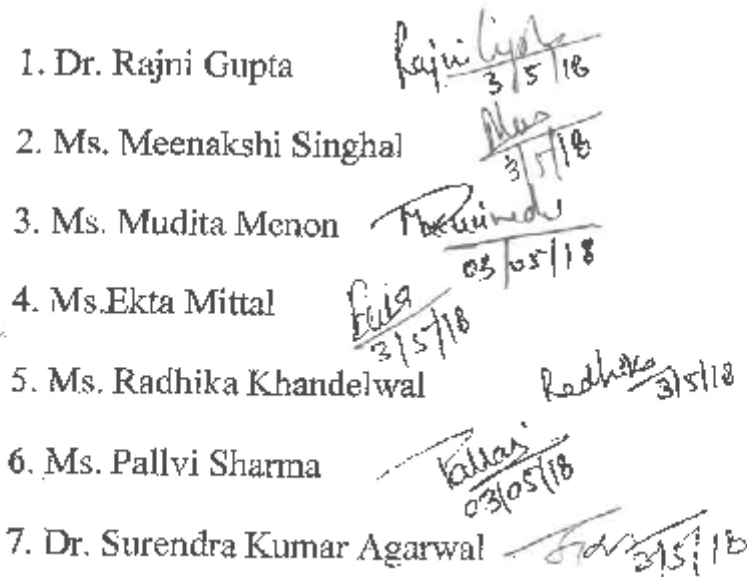 1. Dr. Rajni Gupta Rajni Gupta
3/5/18
2. Ms. Meenakshi Singhal
3/5/18
3. Ms. Mudita Menon
03/05/18
4. Ms.Ekta Mittal
3/5/18
5. Ms. Radhika Khandelwal Radhika 3/5/18
6. Ms. Pallvi Sharma Pallavi
03/05/18
7. Dr. Surendra Kumar Agarwal 3/5/18